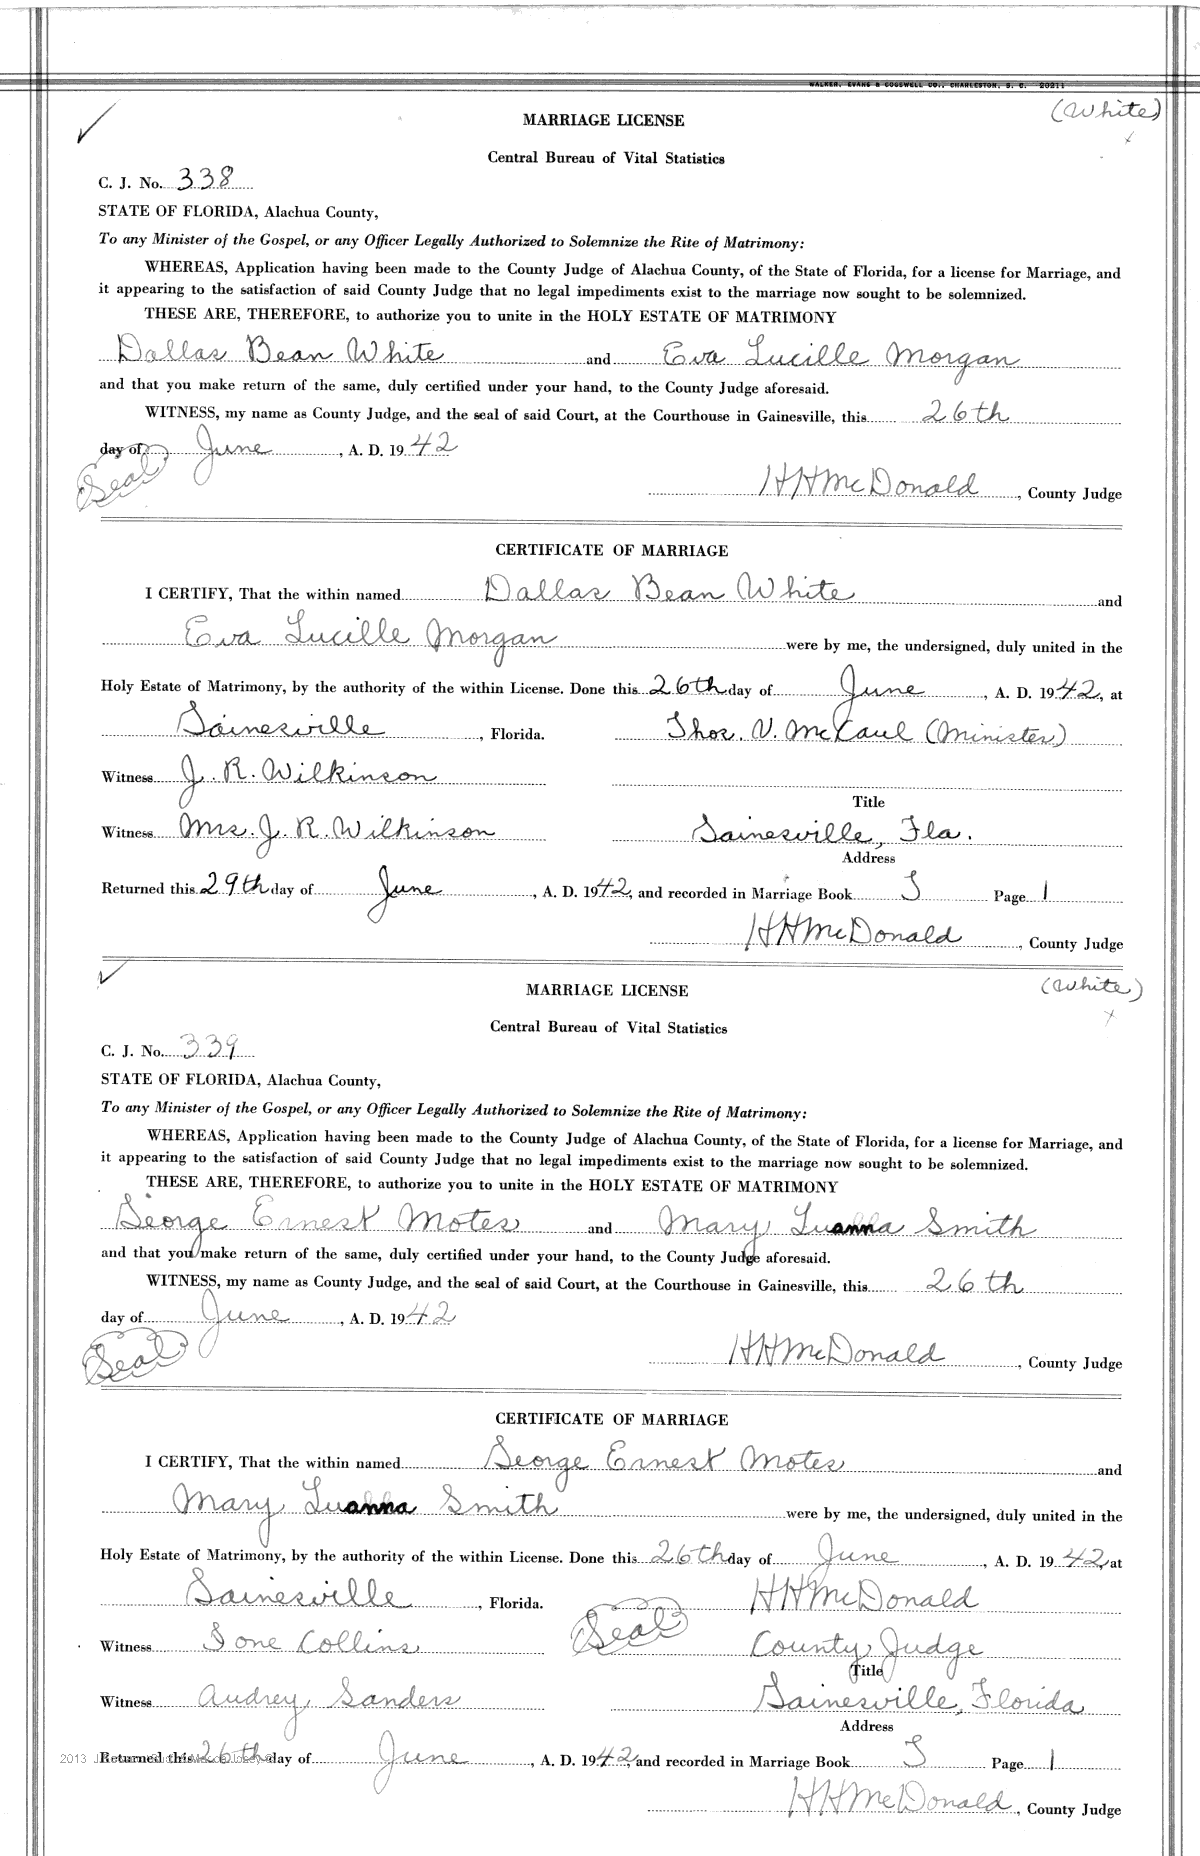 WALKER, EVANS & COGSWELL CO., CHARLESTON, S. C. 20211
(White)
MARRIAGE LICENSE
Central Bureau of Vital Statistics
C. J. No. 338
STATE OF FLORIDA, Alachua County,
To any Minister of the Gospel, or any Officer Legally Authorized to Solemnize the Rite of Matrimony:
WHEREAS, Application having been made to the County Judge of Alachua County, of the State of Florida, for a license for Marriage, and
it appearing to the satisfaction of said County Judge that no legal impediments exist to the marriage now sought to be solemnized.
THESE ARE, THEREFORE, to authorize you to unite in the HOLY ESTATE OF MATRIMONY
Dallas Bean White and Eva Lucille Morgan
and that you make return of the same, duly certified under your hand, to the County Judge aforesaid.
WITNESS, my name as County Judge, and the seal of said Court, at the Courthouse in Gainesville, this 26th
day of June, A. D. 1942
(Seal)
HHMcDonald, County Judge
CERTIFICATE OF MARRIAGE
I CERTIFY, That the within named Dallas Bean White and
Eva Lucille Morgan were by me, the undersigned, duly united in the
Holy Estate of Matrimony, by the authority of the within License. Done this 26th day of June, A. D. 1942, at
Gainesville, Florida. Thos. V. McCaul (Minister)
Witness J. R. Wilkinson
Title
Witness Mrs. J. R. Wilkinson Gainesville, Fla.
Address
Returned this 29th day of June, A. D. 1942, and recorded in Marriage Book Page 1
HHMcDonald, County Judge
(White)
MARRIAGE LICENSE
Central Bureau of Vital Statistics
C. J. No. 339
STATE OF FLORIDA, Alachua County,
To any Minister of the Gospel, or any Officer Legally Authorized to Solemnize the Rite of Matrimony:
WHEREAS, Application having been made to the County Judge of Alachua County, of the State of Florida, for a license for Marriage, and
it appearing to the satisfaction of said County Judge that no legal impediments exist to the marriage now sought to be solemnized.
THESE ARE, THEREFORE, to authorize you to unite in the HOLY ESTATE OF MATRIMONY
George Ernest Motes and Mary Luanna Smith
and that you make return of the same, duly certified under your hand, to the County Judge aforesaid.
WITNESS, my name as County Judge, and the seal of said Court, at the Courthouse in Gainesville, this 26th
day of June, A. D. 1942
(Seal)
HHMcDonald, County Judge
CERTIFICATE OF MARRIAGE
I CERTIFY, That the within named George Ernest Motes and
Mary Luanna Smith were by me, the undersigned, duly united in the
Holy Estate of Matrimony, by the authority of the within License. Done this 26th day of June, A. D. 1942, at
Gainesville, Florida. HHMcDonald
Witness Ione Collins (Seal) County Judge
Title
Witness Audrey Sanders Gainesville, Florida
Address
Returned this 26th day of June, A. D. 1942, and recorded in Marriage Book Page 1
2013
HHMcDonald, County Judge